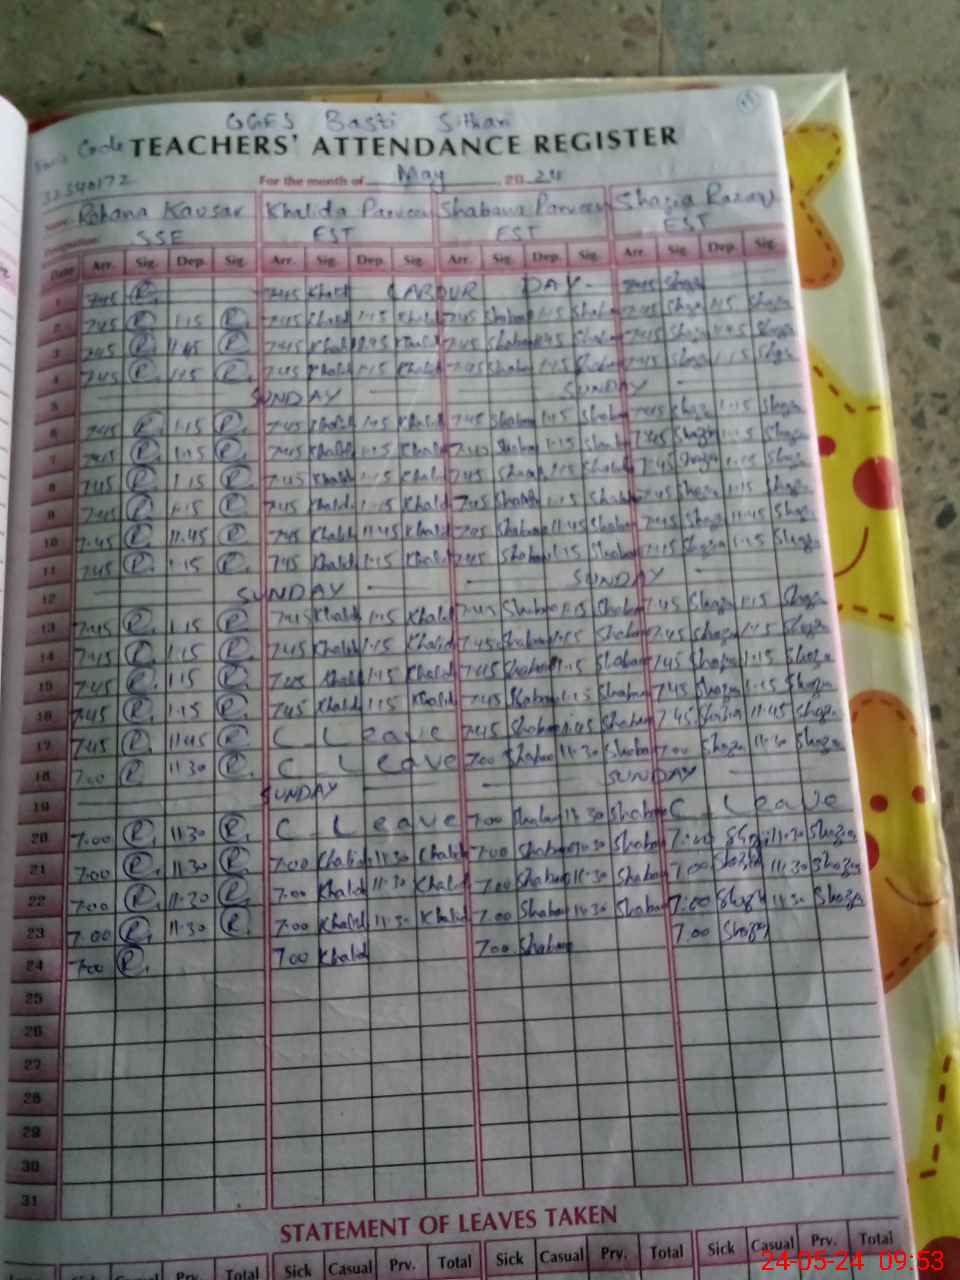 GGES Basti Sithari
Code TEACHERS' ATTENDANCE REGISTER
For the month of May 2024
Rehana Kausar Khalida Parveen Shabana Parveen Shazia
SSE EST EST EST
Date Arr. Sig. Dep. Sig. Arr. Sig. Dep. Sig. Arr. Sig. Dep. Sig. Arr. Sig. Dep. Sig.
1 7:45 R. 7:45 Khalid LABOUR DAY 7:45 Shaza
2 7:45 R. 1:15 R. 7:45 Khalid 1:15 Khalid 7:45 Shaban 1:15 Shaban 7:45 Shaza 1:15 Shaza
3 7:45 R. R. 7:45 Khalid Khalid 7:45 Shaban Shaban 7:45 Shaza Shaza
4 7:45 R. 1:15 R. 7:45 Khalid 1:15 Khalid 7:45 Shaban 1:15 Shaban 7:45 Shaza 1:15 Shaza
5 SUNDAY SUNDAY
6 7:45 R. 1:15 R. 7:45 Khalid 1:15 Khalid 7:45 Shaban 1:15 Shaban 7:45 Shaza 1:15 Shaza
7 7:45 R. 1:15 R. 7:45 Khalid 1:15 Khalid 7:45 Shaban 1:15 Shaban 7:45 Shaza 1:15 Shaza
8 7:45 R. 1:15 R. 7:45 Khalid 1:15 Khalid 7:45 Shaban 1:15 Shaban 7:45 Shaza 1:15 Shaza
9 7:45 R. 1:15 R. 7:45 Khalid 1:15 Khalid 7:45 Shaban 1:15 Shaban 7:45 Shaza 1:15 Shaza
10 7:45 R. 11:45 R. 7:45 Khalid 11:45 Khalid 7:45 Shaban 11:45 Shaban 7:45 Shaza 11:45 Shaza
11 7:45 R. 1:15 R. 7:45 Khalid 1:15 Khalid 7:45 Shaban 1:15 Shaban Shaza 1:15 Shaza
12 SUNDAY SUNDAY
13 7:45 R. 1:15 R. 7:45 Khalid 1:15 Khalid 7:45 Shaban 1:15 Shaban 7:45 Shaza 1:15 Shaza
14 7:45 R. 1:15 R. 7:45 Khalid 1:15 Khalid 7:45 Shaban 1:15 Shaban 7:45 Shaza 1:15 Shaza
15 7:45 R. 1:15 R. 7:45 Khalid 1:15 Khalid 7:45 Shaban 1:15 Shaban 7:45 Shaza 1:15 Shaza
16 7:45 R. 1:15 R. 7:45 Khalid 1:15 Khalid 7:45 Shaban 1:15 Shaban 7:45 Shaza 1:15 Shaza
17 7:45 R. 11:45 R. C. Leave 7:45 Shaban 11:45 Shaban 7:45 Shaza 11:45 Shaza
18 7:00 R. 11:30 R. C. Leave 7:00 Shaban 11:30 Shaban 7:00 Shaza 11:30 Shaza
19 SUNDAY SUNDAY
20 7:00 R. 11:30 R. C. Leave 7:00 Shaban 11:30 Shaban C. Leave
21 7:00 R. 11:30 R. 7:00 Khalid 11:30 Khalid 7:00 Shaban 11:30 Shaban 7:00 11:30 Shaza
22 7:00 R. 11:30 R. 7:00 Khalid 11:30 Khalid 7:00 Shaban 11:30 Shaban 7:00 Shaza 11:30 Shaza
23 7:00 R. 11:30 R. 7:00 Khalid 11:30 Khalid 7:00 Shaban 11:30 Shaban 7:00 Shaza 11:30 Shaza
24 7:00 R. 7:00 Khalid 7:00 Shaban 7:00 Shaza
25
26
27
28
29
30
31
STATEMENT OF LEAVES TAKEN
Sick Casual Prv. Total Sick Casual Prv. Total Sick Casual Prv. Total Sick Casual Prv. Total
24-05-24 09:53